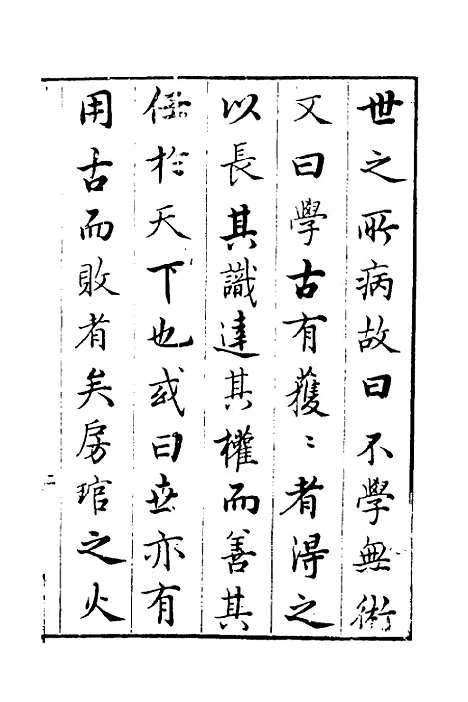 世之所病故曰不學無術
又曰學古有獲〻者得之
以長其識達其權而善其
術於天下也或曰世亦有
用古而敗者矣房琯之火
二